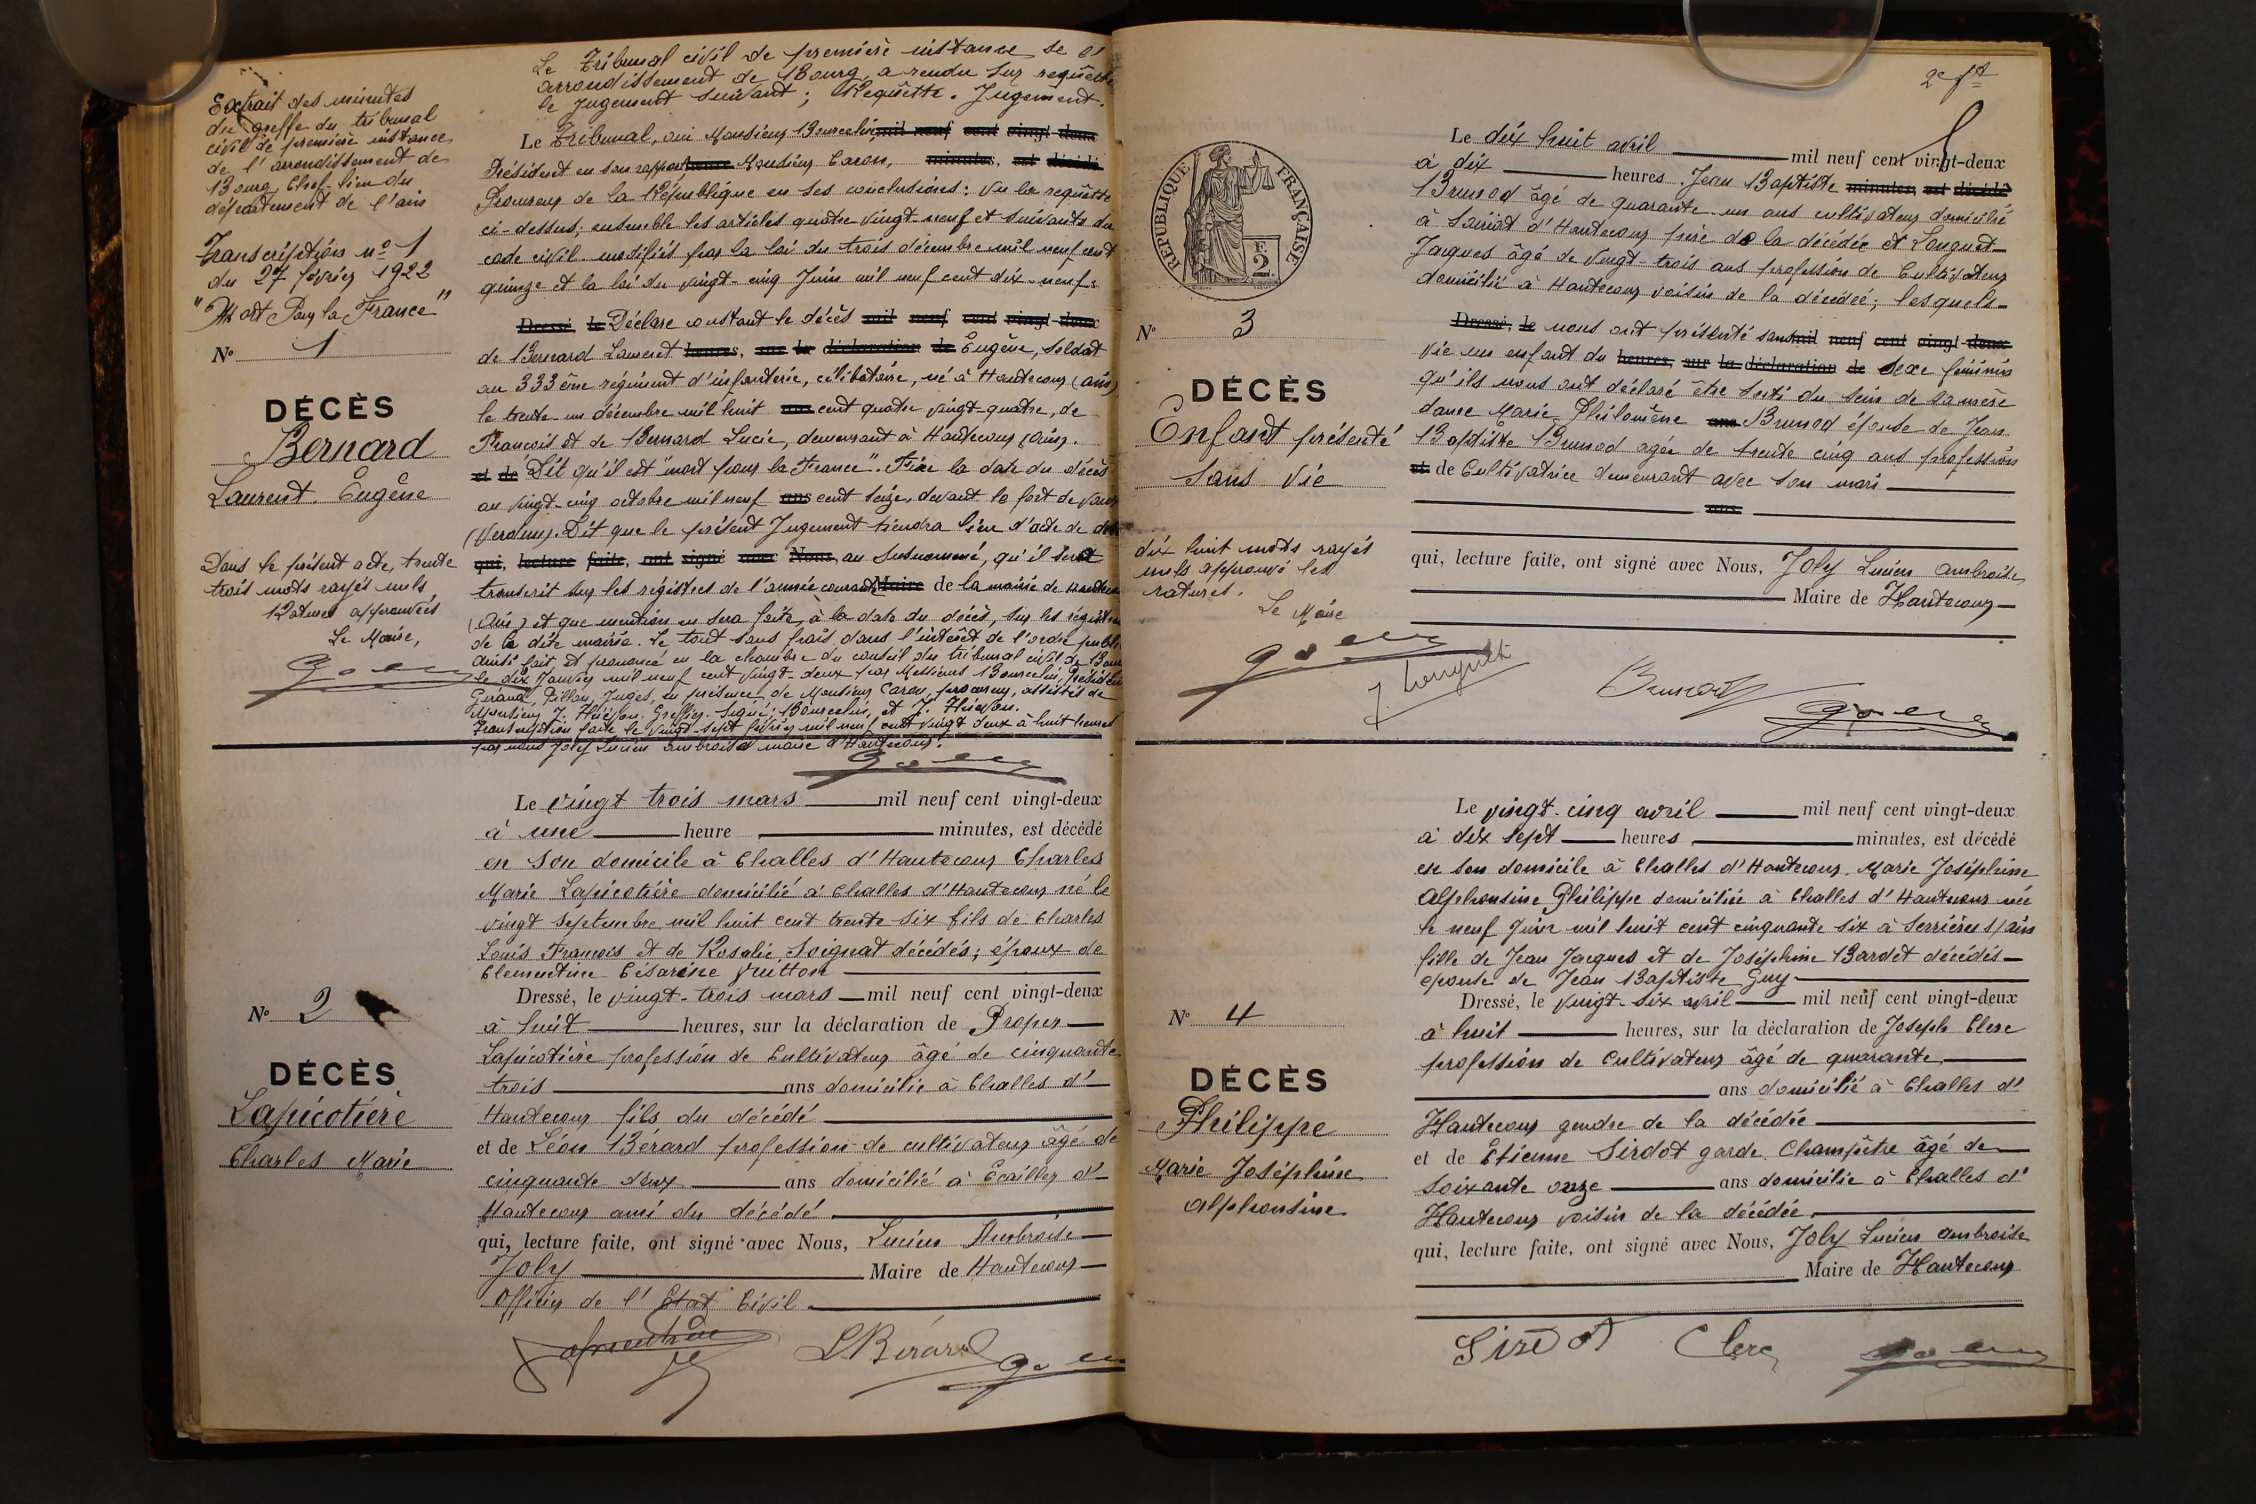 Extrait des minutes
du greffe du tribunal
civil de première instance
de l'arrondissement de
Bourg, Chef-lieu du
département de l'ain
Transcription nº 1
du 27 février 1922
"Mort Pour la France"
Nº 1
DÉCÈS
Bernard
Laurent Eugène
Dans le présent acte, trente
trois mots rayés nuls
Ratures approuvées
Le Maire,
Joly
Le Tribunal civil de première instance
arrondissement de Bourg, a rendu sur requête
le jugement suivant; Requête. Jugement.
Le Tribunal, oui Monsieur Bourcelin, mil neuf cent vingt-deux
Président en son rapport, heures Monsieur Caron, minutes, est décédé
Procureur de la République en ses conclusions: Vu la requête
ci-dessus; ensemble les articles quatre vingt-neuf et suivants du
code civil modifiés par la loi du trois décembre mil neuf cent
quinze et la loi du vingt-cinq Juin mil neuf cent dix-neuf:
Dressé, le Déclare constant le décès mil neuf cent vingt-deux
de Bernard Laurent heures, sur la déclaration de Eugène, Soldat
au 333ème régiment d'infanterie, célibataire, né à Hautecour (ain)
le trente un décembre mil huit ans cent quatre vingt-quatre, de
François et de Bernard Lucie, demeurant à Hautecour (ain).
et de Dit qu'il est "mort pour la France". Fixe la date du décès
au vingt-cinq octobre mil neuf ans cent seize, devant le fort de Vaux
(Verdun). Dit que le présent Jugement tiendra lieu d'acte de
qui, lecture faite, ont signé avec Nous, au susnommé, qu'il sera
transcrit sur les régistres de l'année courante Maire de la mairie de
(Ain) et que mention en sera faite, à la date du décès, sur les régistres
de la dite mairie. Le tout sans frais dans l'intérêt de l'ordre public
Ainsi fait et prononcé en la chambre du conseil du tribunal civil de Bourg
le dix Janvier mil neuf cent vingt-deux par Messieurs Bourcelin, Président
Giraud, Pillon, Juges, en présence de Monsieur Caron, procureur, assistés de
Monsieur Greffier. Signé: Bourcelin, et
Transcription faite le vingt-sept février mil neuf cent vingt deux à huit heures
par nous Joly Lucien ambroise maire d'Hautecour.
Joly
Nº 2
DÉCÈS
Lapicotière
Charles Marie
Le vingt trois mars mil neuf cent vingt-deux
à une heure minutes, est décédé
en son domicile à Challes d'Hautecour Charles
Marie Lapicotière domicilié à Challes d'Hautecour né le
vingt septembre mil huit cent trente six fils de Charles
Louis François et de Rosalie Soignat décédés; époux de
Clementine Césarine Vuitton
Dressé, le vingt-trois mars mil neuf cent vingt-deux
à huit heures, sur la déclaration de Prosper
Lapicotière profession de Cultivateur âgé de cinquante
trois ans domicilié à Challes d'
Hautecour fils du décédé
et de Léon Bérard profession de cultivateur âgé de
cinquante deux ans domicilié à d'
Hautecour ami du décédé
qui, lecture faite, ont signé avec Nous, Lucien Ambroise
Joly Maire de Hautecour
Officier de l'Etat Civil
LBérard Joly
2e ft
REPUBLIQUE FRANÇAISE
F
2
Nº 3
DÉCÈS
Enfant présenté
Sans Vie
dix huit mots rayés
nuls approuvé les
ratures.
Le Maire
Joly
Le dix huit avril mil neuf cent vingt-deux
à dix heures Jean Baptiste minutes, est décédé
Brunod âgé de quarante-un ans cultivateur domicilié
à d'Hautecour père de la décédée et Longuet
Jacques âgé de vingt-trois ans profession de Cultivateur
domicilié à Hautecour voisin de la décédée; lesquels
Dressé, le nous ont présenté sans mil neuf cent vingt-deux
vie un enfant du heures, sur la déclaration de sexe féminin
qu'ils nous ont déclaré être sorti du sein de sa mère
dame Marie Philomène ans Brunod épouse de Jean
Baptiste Brunod agée de trente cinq ans profession
et de Cultivatrice demeurant avec son mari
ans
qui, lecture faite, ont signé avec Nous, Joly Lucien ambroise
Maire de Hautecour
J. Longuet Brunod Joly
Nº 4
DÉCÈS
Philippe
Marie Joséphine
Alphonsine
Le vingt-cinq avril mil neuf cent vingt-deux
à dix sept heures minutes, est décédé
en son domicile à Challes d'Hautecour Marie Joséphine
Alphonsine Philippe domiciliée à Challes d'Hautecour née
le neuf Juin mil huit cent cinquante six à Serrières s/ain
fille de Jean Jacques et de Joséphine Bardet décédés
épouse de Jean Baptiste Guy
Dressé, le vingt-six avril mil neuf cent vingt-deux
à huit heures, sur la déclaration de Joseph Clerc
profession de Cultivateur âgé de quarante
ans domicilié à Challes d'
Hautecour gendre de la décédée
et de Etienne Sirdot garde Champêtre âgé de
soixante onze ans domicilié à Challes d'
Hautecour voisin de la décédée
qui, lecture faite, ont signé avec Nous, Joly Lucien ambroise
Maire de Hautecour
Sirdot Clerc Joly